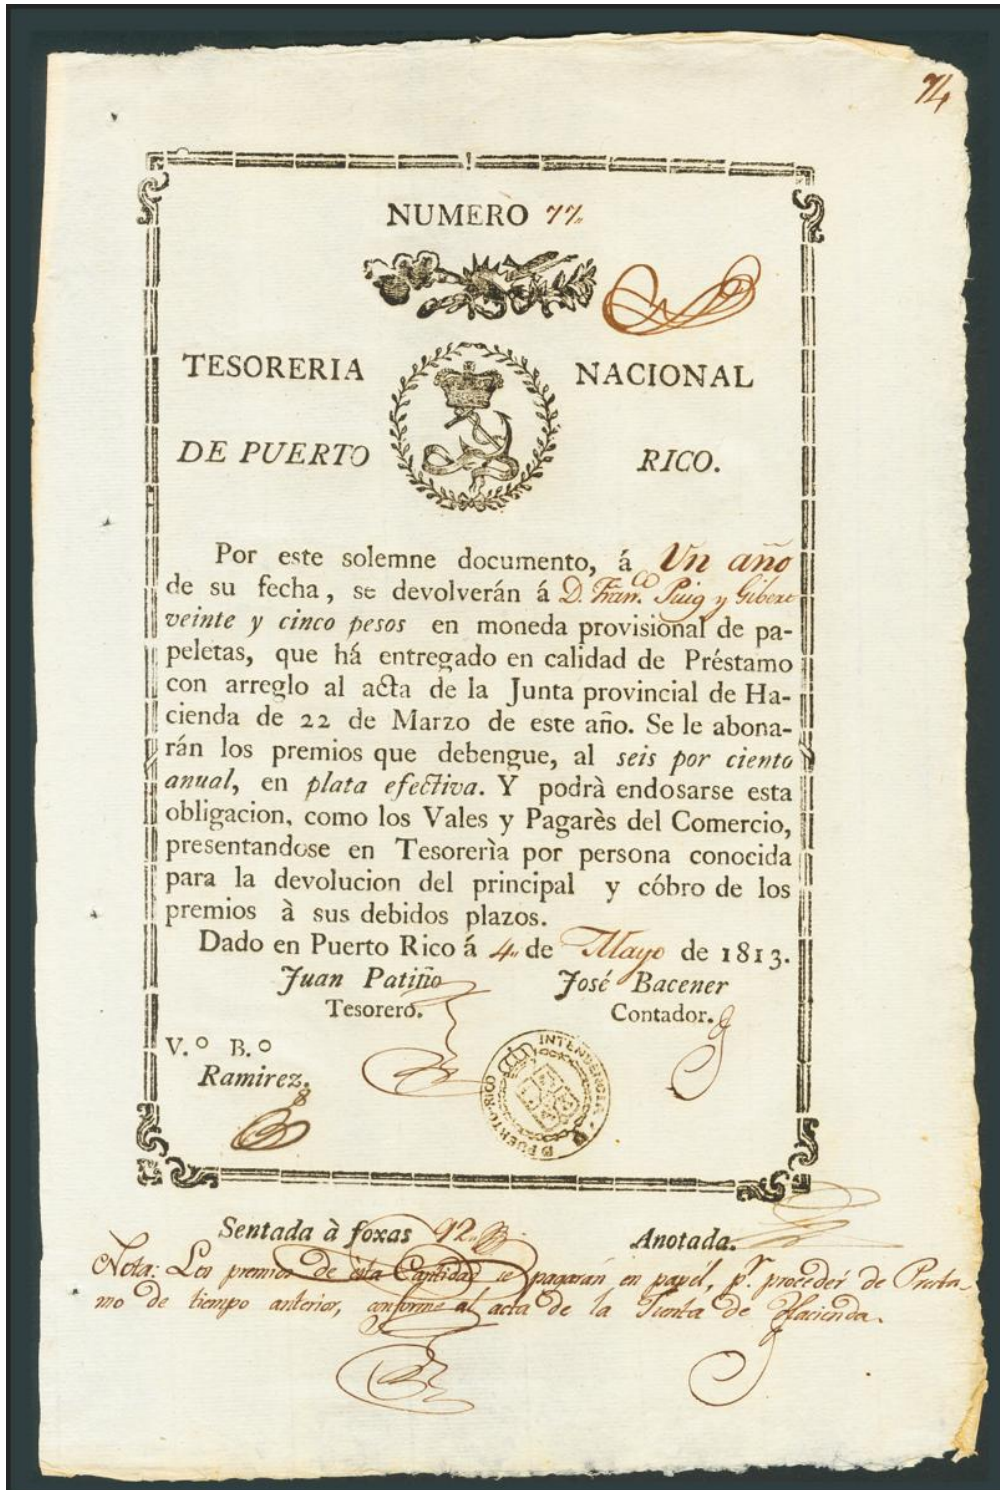 74
NUMERO 77.
TESORERIA NACIONAL
DE PUERTO RICO.
Por este solemne documento, á Un año
de su fecha, se devolverán á D. Fran.co Puig y Gibert
veinte y cinco pesos en moneda provisional de pa-
peletas, que há entregado en calidad de Préstamo
con arreglo al acta de la Junta provincial de Ha-
cienda de 22 de Marzo de este año. Se le abona-
rán los premios que debengue, al seis por ciento
anual, en plata efectiva. Y podrà endosarse esta
obligacion, como los Vales y Pagarès del Comercio,
presentandose en Tesorerìa por persona conocida
para la devolucion del principal y cóbro de los
premios à sus debidos plazos.
Dado en Puerto Rico á 4. de Mayo de 1813.
Juan Patiño José Bacener
Tesorero. Contador.
V.º B.º
Ramirez.
INTENDENCIA D PUERTO-RICO
Sentada à foxas 92. Anotada.
Nota: Los premios de esta Cantidad se pagarán en papél, pr. proceder de Presta-
mo de tiempo anterior, conforme al acta de la Junta de Hacienda.